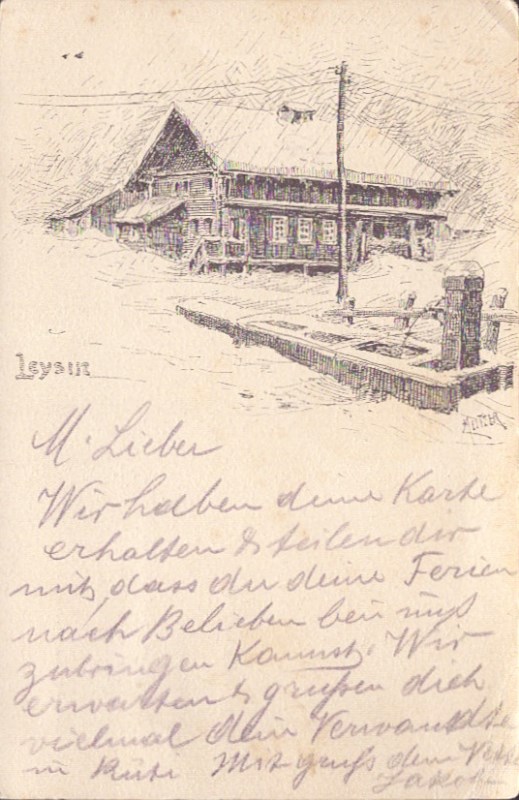 Leysin
M. Lieber
Wir haben deine Karte
erhalten & teilen dir
mit, dass du deine Ferien
nach Belieben bei uns
zubringen kannst. Wir
erwarten & grüßen dich
vielmal dein Verwandte
in Rüti Mit gruß dein Vetter
Jakob